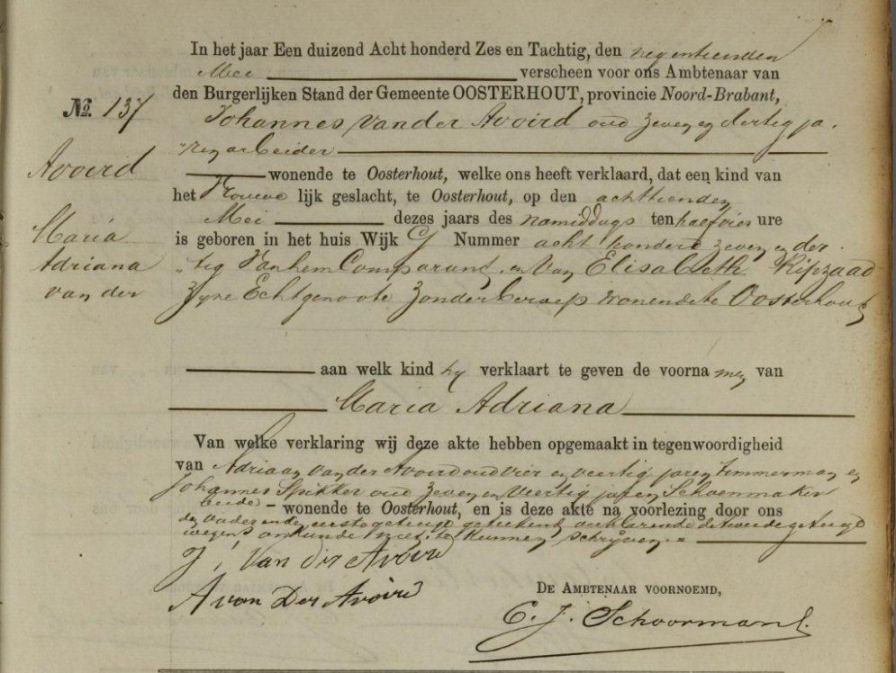 In het jaar Een duizend Acht honderd Zes en Tachtig, den negentienden
Mei verscheen voor ons Ambtenaar van
den Burgerlijken Stand der Gemeente OOSTERHOUT, provincie Noord-Brabant,
№. 137
Johannes van der Avoird oud zeven en dertig ja-
ren arbeider
Avoird
wonende te Oosterhout, welke ons heeft verklaard, dat een kind van
het Vrouwelijk geslacht, te Oosterhout, op den achttienden
Mei dezes jaars des namiddags ten half vier ure
Maria
is geboren in het huis Wijk G Nummer acht honderd zeven en der-
Adriana
tig van hem Comparant en van Elisabeth Ripzaad
van der
zijne Echtgenoote zonder beroep wonende te Oosterhout
aan welk kind hij verklaart te geven de voornamen van
Maria Adriana
Van welke verklaring wij deze akte hebben opgemaakt in tegenwoordigheid
van Adriaan van der Avoird oud vier en veertig jaren timmerman en
Johannes Spikker oud zeven en veertig jaren Schoenmaker
beide wonende te Oosterhout, en is deze akte na voorlezing door ons
den vader en den eerste getuige geteekend verklarende de tweede getuige
wegens onkunde niet te kunnen schrijven
J. van der Avoird
A van Der Avoird
DE AMBTENAAR VOORNOEMD,
C. J. Schoormans